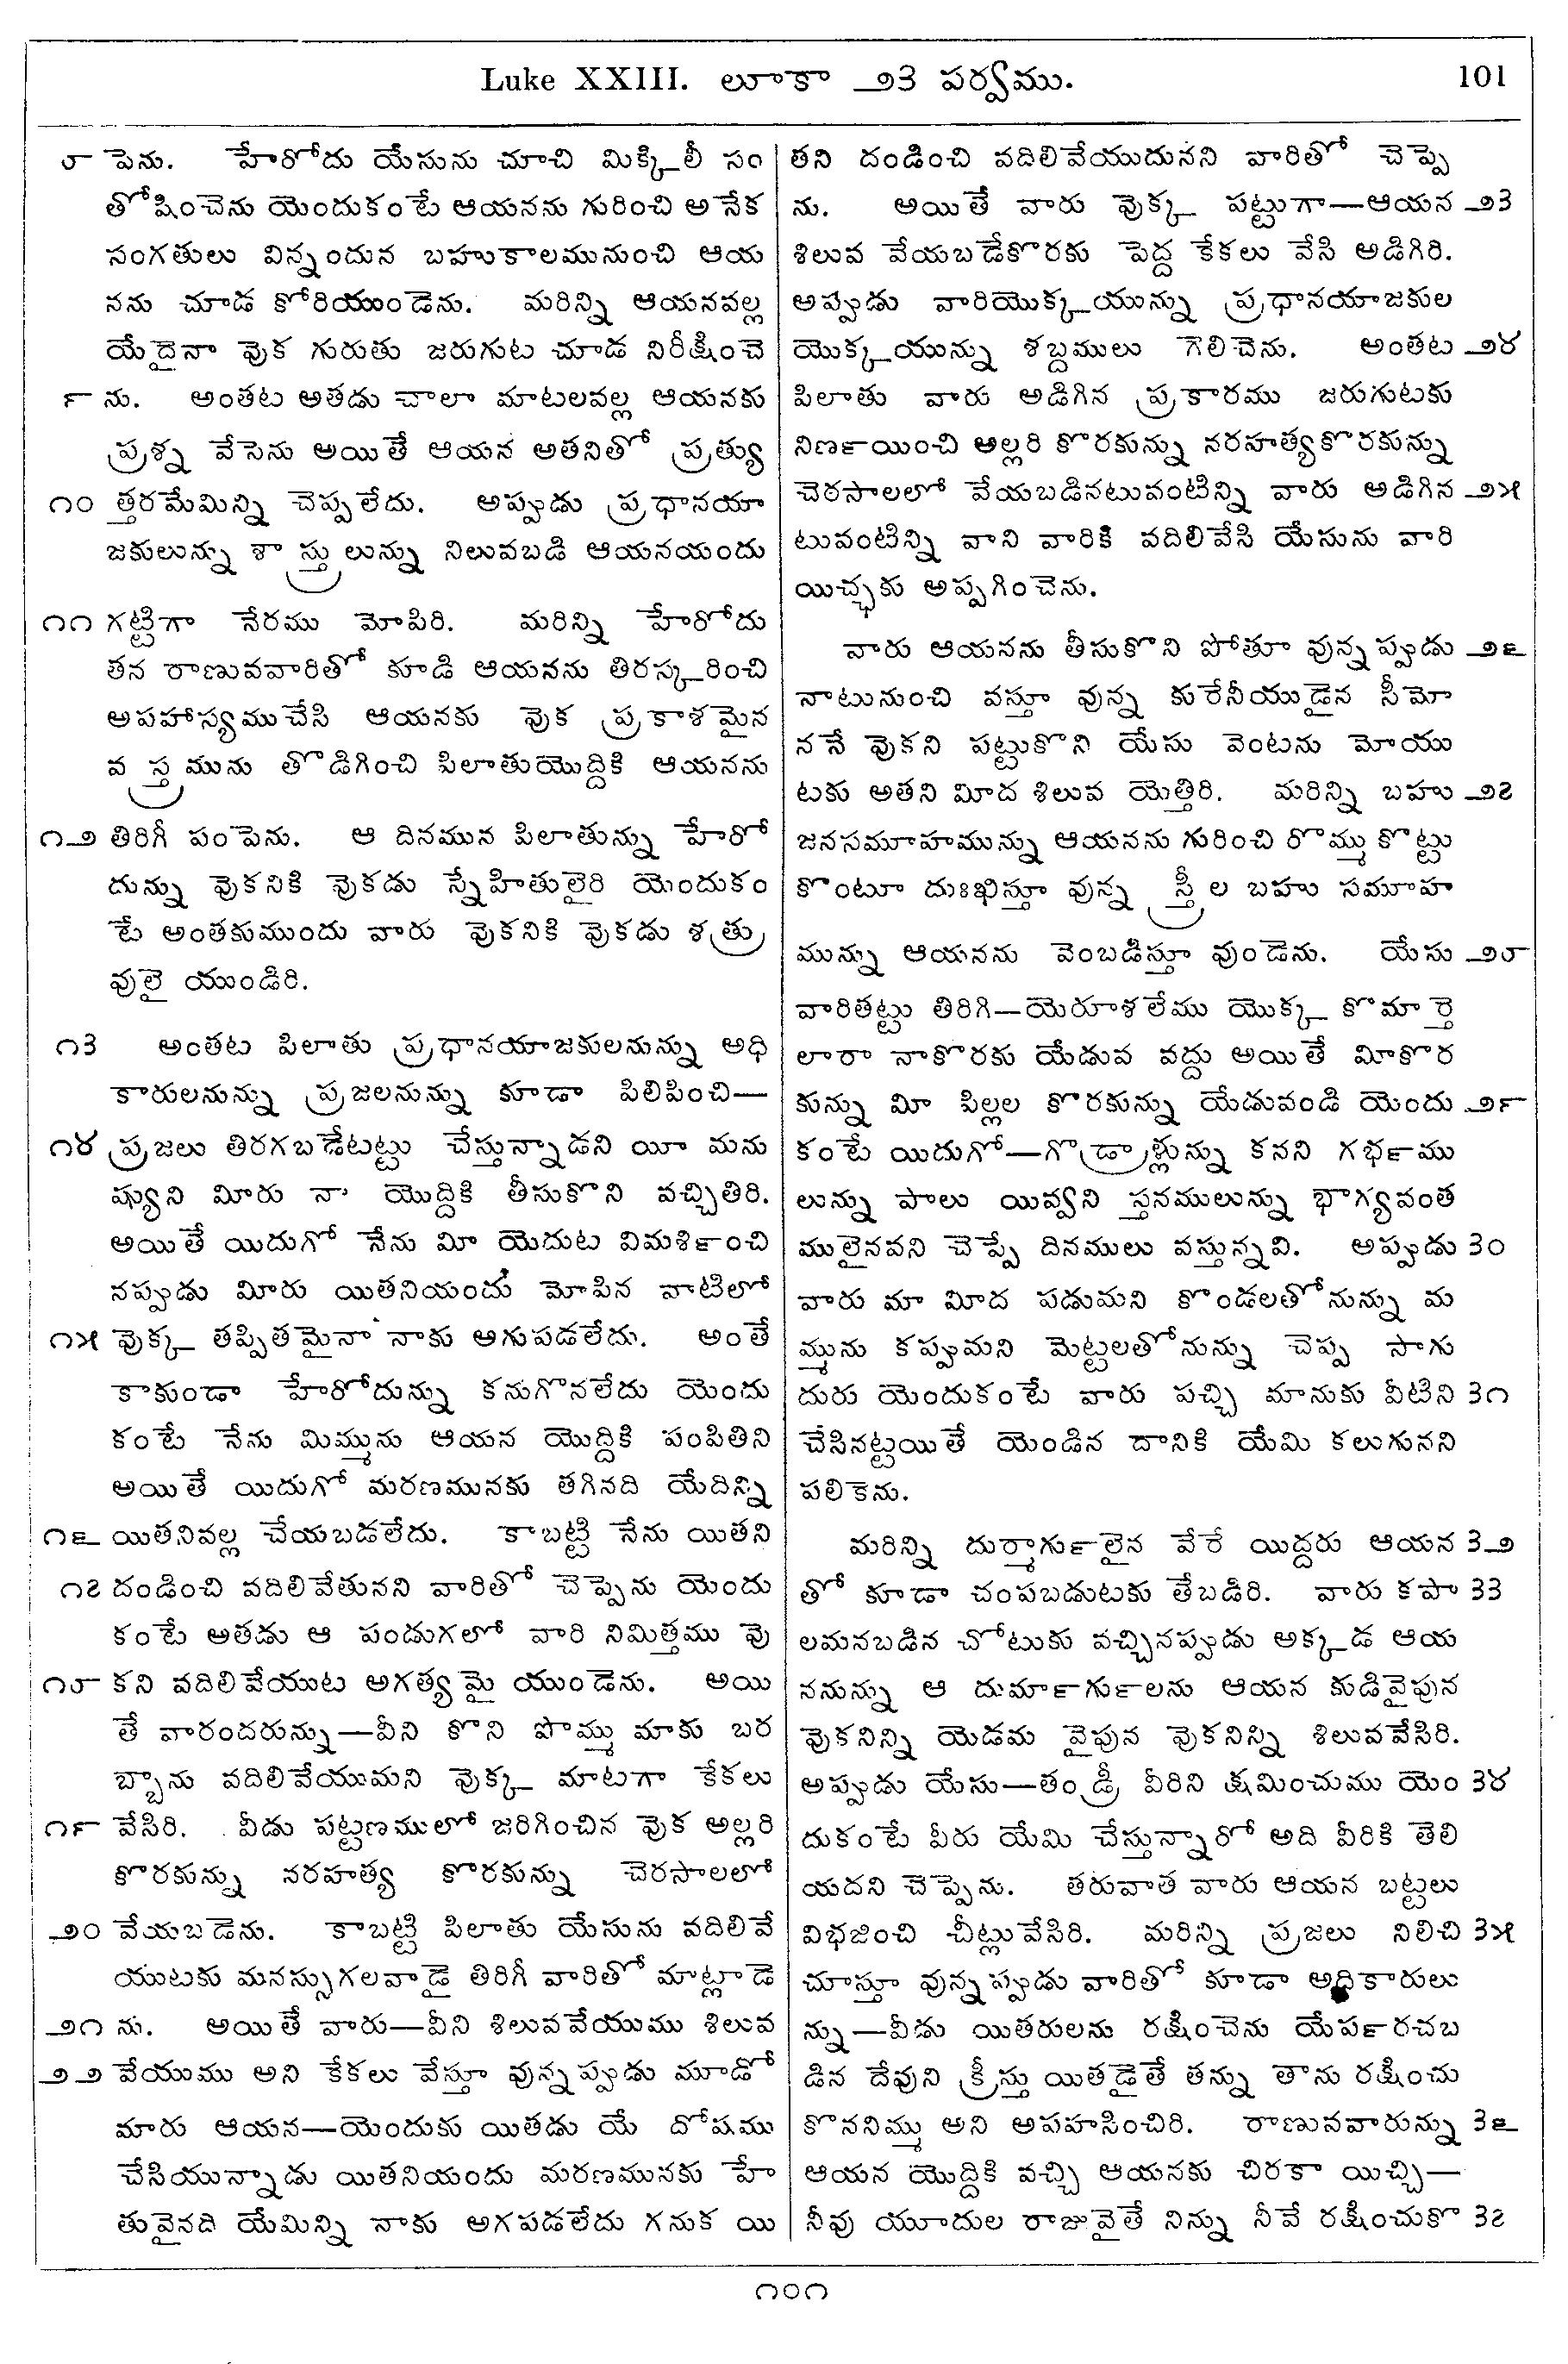 Luke XXIII. లూకా ౨౩ పర్వము. 101
౮ పెను. హేరోదు యేసును చూచి మిక్కిలీ సం
తోషించెను యెందుకంటే ఆయనను గురించి అనేక
సంగతులు విన్నందున బహుకాలమునుంచి ఆయ
నను చూడ కోరియుండెను. మరిన్ని ఆయనవల్ల
యేదైనా వొక గురుతు జరుగుట చూడ నిరీక్షించె
౯ ను. అంతట అతడు చాలా మాటలవల్ల ఆయనకు
ప్రశ్న వేసెను అయితే ఆయన అతనితో ప్రత్యు
౧౦ త్తరమేమిన్ని చెప్పలేదు. అప్పుడు ప్రధానయా
జకులున్ను శాస్త్రులున్ను నిలువబడి ఆయనయందు
౧౧ గట్టిగా నేరము మోపిరి. మరిన్ని హేరోదు
తన రాణువవారితో కూడి ఆయనను తిరస్కరించి
అపహాస్యముచేసి ఆయనకు వొక ప్రకాశమైన
వస్త్రమును తొడిగించి పిలాతుయొద్దికి ఆయనను
౧౨ తిరిగీ పంపెను. ఆ దినమున పిలాతున్ను హేరో
దున్ను వొకనికి వొకడు స్నేహితులైరి యెందుకం
టే అంతకుముందు వారు వొకనికి వొకడు శత్రు
వులై యుండిరి.
౧౩ అంతట పిలాతు ప్రధానయాజకులనున్ను అధి
కారులనున్ను ప్రజలనున్ను కూడా పిలిపించి—
౧౪ ప్రజలు తిరగబడేటట్టు చేస్తున్నాడని యీ మను
ష్యుని మీరు నా యొద్దికి తీసుకొని వచ్చితిరి.
అయితే యిదుగో నేను మీ యెదుట విమశి౯ంచి
నప్పుడు మీరు యితనియందు మోపిన వాటిలో
౧౫ వొక్క తప్పితమైనా నాకు ఆగుపడలేదు. అంతే
కాకుండా హేరోదున్ను కనుగొనలేదు యెందు
కంటే నేను మిమ్మును ఆయన యొద్దికి పంపితిని
అయితే యిదుగో మరణమునకు తగినది యేదిన్ని
౧౬ యితనివల్ల చేయబడలేదు. కాబట్టి నేను యితని
౧౭ దండించి వదిలివేతునని వారితో చెప్పెను యెందు
కంటే అతడు ఆ పండుగలో వారి నిమిత్తము వొ
౧౮ కని వదిలివేయుట అగత్యమై యుండెను. అయి
తే వారందరున్ను—వీని కొని పొమ్ము మాకు బర
బ్బాను వదిలివేయుమని వొక్క మాటగా కేకలు
౧౯ వేసిరి. వీడు పట్టణములో జరిగించిన వొక అల్లరి
కొరకున్ను నరహత్య కొరకున్ను చెరసాలలో
౨౦ వేయబడెను. కాబట్టి పిలాతు యేసును వదిలివే
యుటకు మనస్సుగలవాడై తిరిగీ వారితో మాట్లాడె
౨౧ ను. అయితే వారు—వీని శిలువవేయుము శిలువ
౨౨ వేయుము అని కేకలు వేస్తూ వున్నప్పుడు మూడో
మారు ఆయన—యెందుకు యితడు యే దోషము
చేసియున్నాడు యితనియందు మరణమునకు హే
తువైనది యేమిన్ని నాకు అగపడలేదు గనుక యి
తని దండించి వదిలివేయుదునని వారితో చెప్పె
ను. అయితే వారు వొక్క పట్టుగా—ఆయన ౨౩
శిలువ వేయబడేకొరకు పెద్ద కేకలు వేసి అడిగిరి.
అప్పుడు వారియొక్కయున్ను ప్రధానయాజకుల
యొక్కయున్ను శబ్దములు గెలిచెను. అంతట ౨౪
పిలాతు వారు అడిగిన ప్రకారము జరుగుటకు
నిణ౯యించి అల్లరి కొరకున్ను నరహత్యకొరకున్ను
చెరసాలలో వేయబడినటువంటిన్ని వారు అడిగిన ౨౫
టువంటిన్ని వాని వారికి వదిలివేసి యేసును వారి
యిచ్ఛకు అప్పగించెను.
వారు ఆయనను తీసుకొని పోతూ వున్నప్పుడు ౨౬
నాటునుంచి వస్తూ వున్న కురేనీయుడైన సీమో
ననే వొకని పట్టుకొని యేసు వెంటను మోయు
టకు అతని మీద శిలువ యెత్తిరి. మరిన్ని బహు ౨౭
జనసమూహమున్ను ఆయనను గురించి రొమ్ము కొట్టు
కొంటూ దుఃఖిస్తూ వున్న స్త్రీల బహు సమూహ
మున్ను ఆయనను వెంబడిస్తూ వుండెను. యేసు ౨౮
వారితట్టు తిరిగి—యెరూశలేము యొక్క కొమార్తె
లారా నాకొరకు యేడువ వద్దు అయితే మీకొర
కున్ను మీ పిల్లల కొరకున్ను యేడువండి యెందు ౨౯
కంటే యిదుగో—గొడ్రాళ్లున్ను కనని గభ౯ము
లున్ను పాలు యివ్వని స్తనములున్ను భాగ్యవంత
ములైనవని చెప్పే దినములు వస్తున్నవి. అప్పుడు ౩౦
వారు మా మీద పడుమని కొండలతోనున్ను మ
మ్మును కప్పుమని మెట్టలతోనున్ను చెప్ప సాగు
దురు యెందుకంటే వారు పచ్చి మానుకు వీటిని ౩౧
చేసినట్టయితే యెండిన దానికి యేమి కలుగునని
పలికెను.
మరిన్ని దుర్మాగు౯లైన వేరే యిద్దరు ఆయన ౩౨
తో కూడా చంపబడుటకు తేబడిరి. వారు కపా ౩౩
లమనబడిన చోటుకు వచ్చినప్పుడు అక్కడ ఆయ
ననున్ను ఆ దుమా౯గు౯లను ఆయన కుడివైపున
వొకనిన్ని యెడమ వైపున వొకనిన్ని శిలువవేసిరి.
అప్పుడు యేసు—తండ్రీ వీరిని క్షమించుము యెం ౩౪
దుకంటే వీరు యేమి చేస్తున్నారో అది వీరికి తెలి
యదని చెప్పెను. తరువాత వారు ఆయన బట్టలు
విభజించి చీట్లువేసిరి. మరిన్ని ప్రజలు నిలిచి ౩౫
చూస్తూ వున్నప్పుడు వారితో కూడా అధికారులు
న్ను—వీడు యితరులను రక్షించెను యేప౯రచబ
డిన దేవుని క్రీస్తు యితడైతే తన్ను తాను రక్షించు
కొననిమ్ము అని అపహసించిరి. రాణువవారున్ను ౩౬
ఆయన యొద్దికి వచ్చి ఆయనకు చిరకా యిచ్చి—
నీవు యూదుల రాజువైతే నిన్ను నీవే రక్షించుకొ ౩౭
౧౦౧